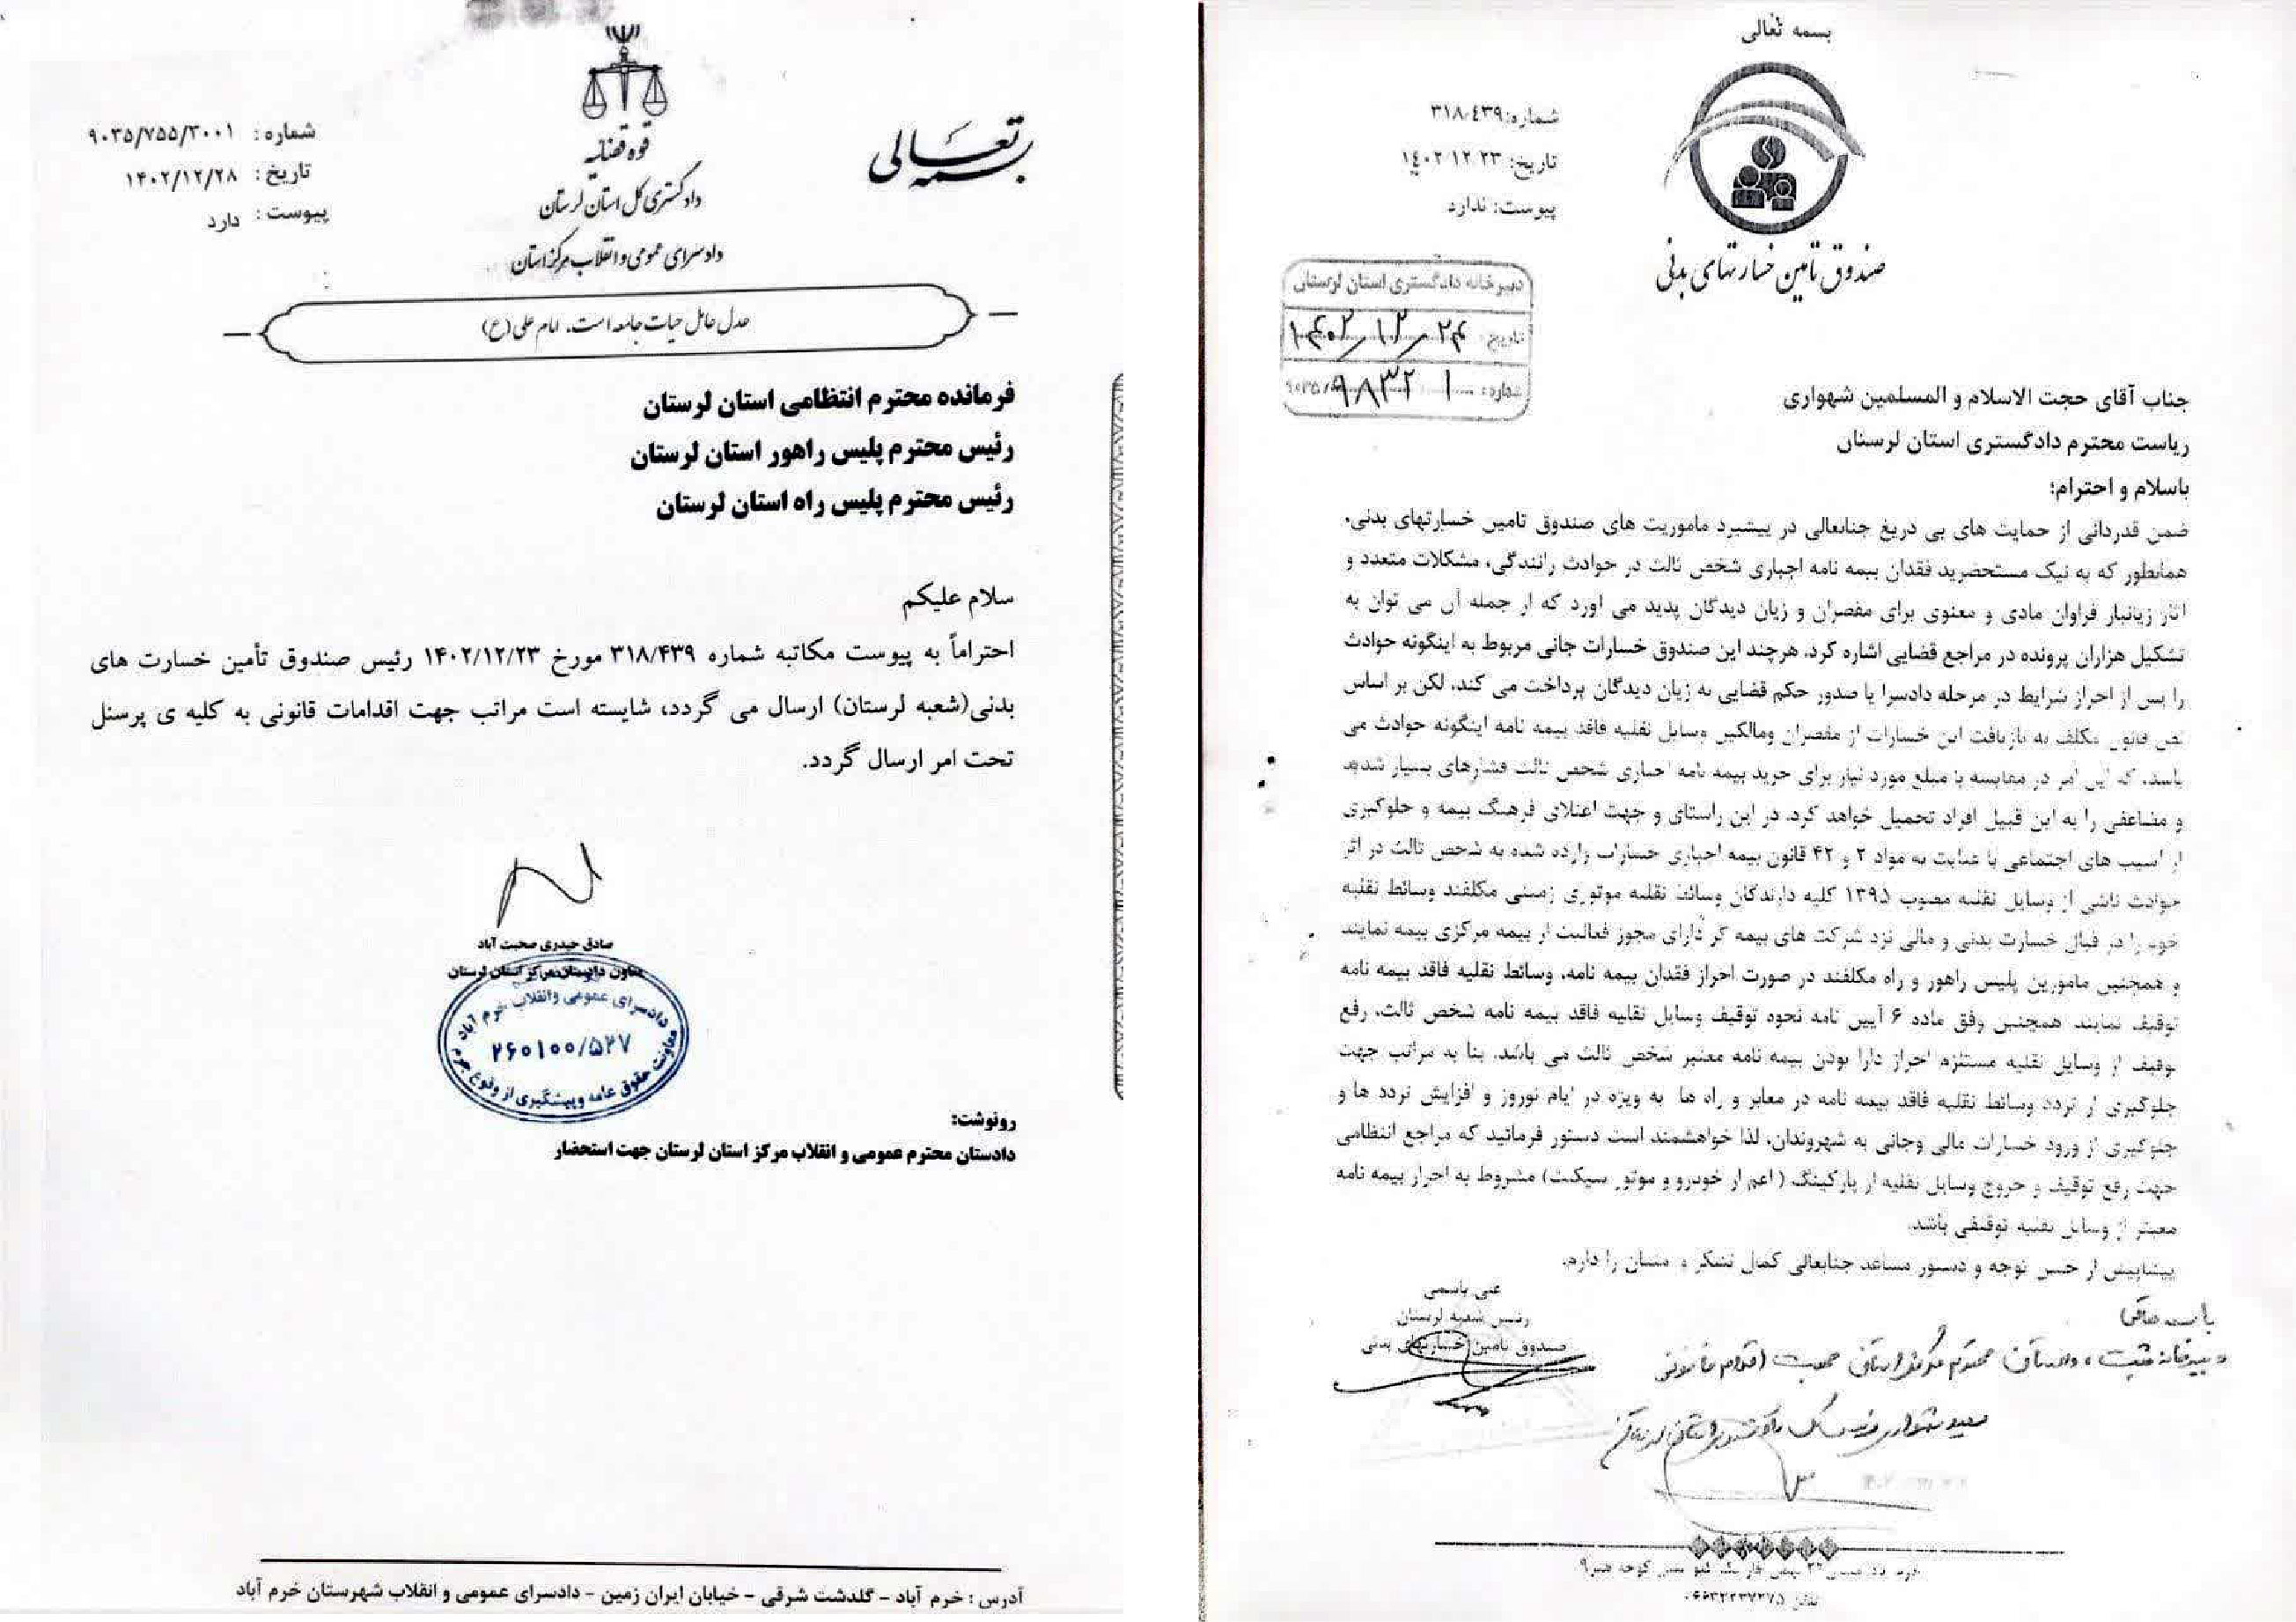 بسمه تعالی
قوه قضائیه
دادگستری کل استان لرستان
دادسرای عمومی و انقلاب مرکز استان
شماره : ۹۰۳۵/۷۵۵/۳۰۰۱
تاریخ : ۱۴۰۲/۱۲/۲۸
پیوست : دارد
عدل عامل حیات جامعه است. امام علی (ع)
فرمانده محترم انتظامی استان لرستان
رئیس محترم پلیس راهور استان لرستان
رئیس محترم پلیس راه استان لرستان
سلام علیکم
احتراماً به پیوست مکاتبه شماره ۳۱۸/۴۳۹ مورخ ۱۴۰۲/۱۲/۲۳ رئیس صندوق تأمین خسارت های
بدنی(شعبه لرستان) ارسال می گردد، شایسته است مراتب جهت اقدامات قانونی به کلیه ی پرسنل
تحت امر ارسال گردد.
صادق حیدری صحبت آباد
معاون دادستان مرکز استان لرستان
دادسرای عمومی و انقلاب خرم آباد
۲۶۰۱۰۰/۵۲۷
معاونت حقوق عامه و پیشگیری از وقوع جرم
رونوشت:
دادستان محترم عمومی و انقلاب مرکز استان لرستان جهت استحضار
آدرس : خرم آباد - گلدشت شرقی - خیابان ایران زمین - دادسرای عمومی و انقلاب شهرستان خرم آباد
بسمه تعالی
صندوق تامین خسارتهای بدنی
شماره: ۳۱۸/۴۳۹
تاریخ: ۱۴۰۲/۱۲/۲۳
پیوست: ندارد
دبیرخانه دادگستری استان لرستان
تاریخ: ۱۴۰۲/۱۲/۲۴
شماره:
جناب آقای حجت الاسلام و المسلمین شهواری
ریاست محترم دادگستری استان لرستان
باسلام و احترام؛
ضمن قدردانی از حمایت های بی دریغ جنابعالی در پیشبرد ماموریت های صندوق تامین خسارتهای بدنی،
همانطور که به نیک مستحضرید فقدان بیمه نامه اجباری شخص ثالث در حوادث رانندگی، مشکلات متعدد و
اثار زیانبار فراوان مادی و معنوی برای مقصران و زیان دیدگان پدید می اورد که از جمله آن می توان به
تشکیل هزاران پرونده در مراجع قضایی اشاره کرد، هرچند این صندوق خسارات جانی مربوط به اینگونه حوادث
را پس از احراز شرایط در مرحله دادسرا یا صدور حکم قضایی به زیان دیدگان پرداخت می کند، لکن بر اساس
نص قانون مکلف به بازیافت این خسارات از مقصران ومالکین وسایل نقلیه فاقد بیمه نامه اینگونه حوادث می
باشد، که این امر در مقایسه با مبلغ مورد نیاز برای خرید بیمه نامه اجباری شخص ثالث فشارهای بسیار شدید
و مضاعفی را به این قبیل افراد تحمیل خواهد کرد، در این راستای و جهت اعتلای فرهنگ بیمه و جلوگیری
از اسیب های اجتماعی با عنایت به مواد ۲ و ۴۲ قانون بیمه اجباری خسارات وارده شده به شخص ثالث در اثر
حوادث ناشی از وسایل نقلیه مصوب ۱۳۹۵ کلیه دارندگان وسائل نقلیه موتوری زمینی مکلفند وسائط نقلیه
خود را در قبال خسارت بدنی و مالی نزد شرکت های بیمه گر دارای مجوز فعالیت از بیمه مرکزی بیمه نمایند
و همچنین مامورین پلیس راهور و راه مکلفند در صورت احراز فقدان بیمه نامه، وسائط نقلیه فاقد بیمه نامه
توقیف نمایند همچنین وفق ماده ۶ آیین نامه نحوه توقیف وسایل نقلیه فاقد بیمه نامه شخص ثالث، رفع
توقیف از وسایل نقلیه مستلزم احراز دارا بودن بیمه نامه معتبر شخص ثالث می باشد، بنا به مراتب جهت
جلوگیری از تردد وسائط نقلیه فاقد بیمه نامه در معابر و راه ها به ویژه در ایام نوروز و افزایش تردد ها و
جلوگیری از ورود خسارات مالی وجانی به شهروندان، لذا خواهشمند است دستور فرمائید که مراجع انتظامی
جهت رفع توقیف و خروج وسایل نقلیه از پارکینگ (اعم از خودرو و موتور سیکلت) مشروط به احراز بیمه نامه
معتبر از وسایل نقلیه توقیفی باشد.
پیشاپیش از حسن توجه و دستور مساعد جنابعالی کمال تشکر و متنان را دارم.
رئیس شعبه لرستان
صندوق تامین خسارتهای بدنی
دبیرخانه ثبت، دادستان محترم مرکز استان جهت اقدام قانونی